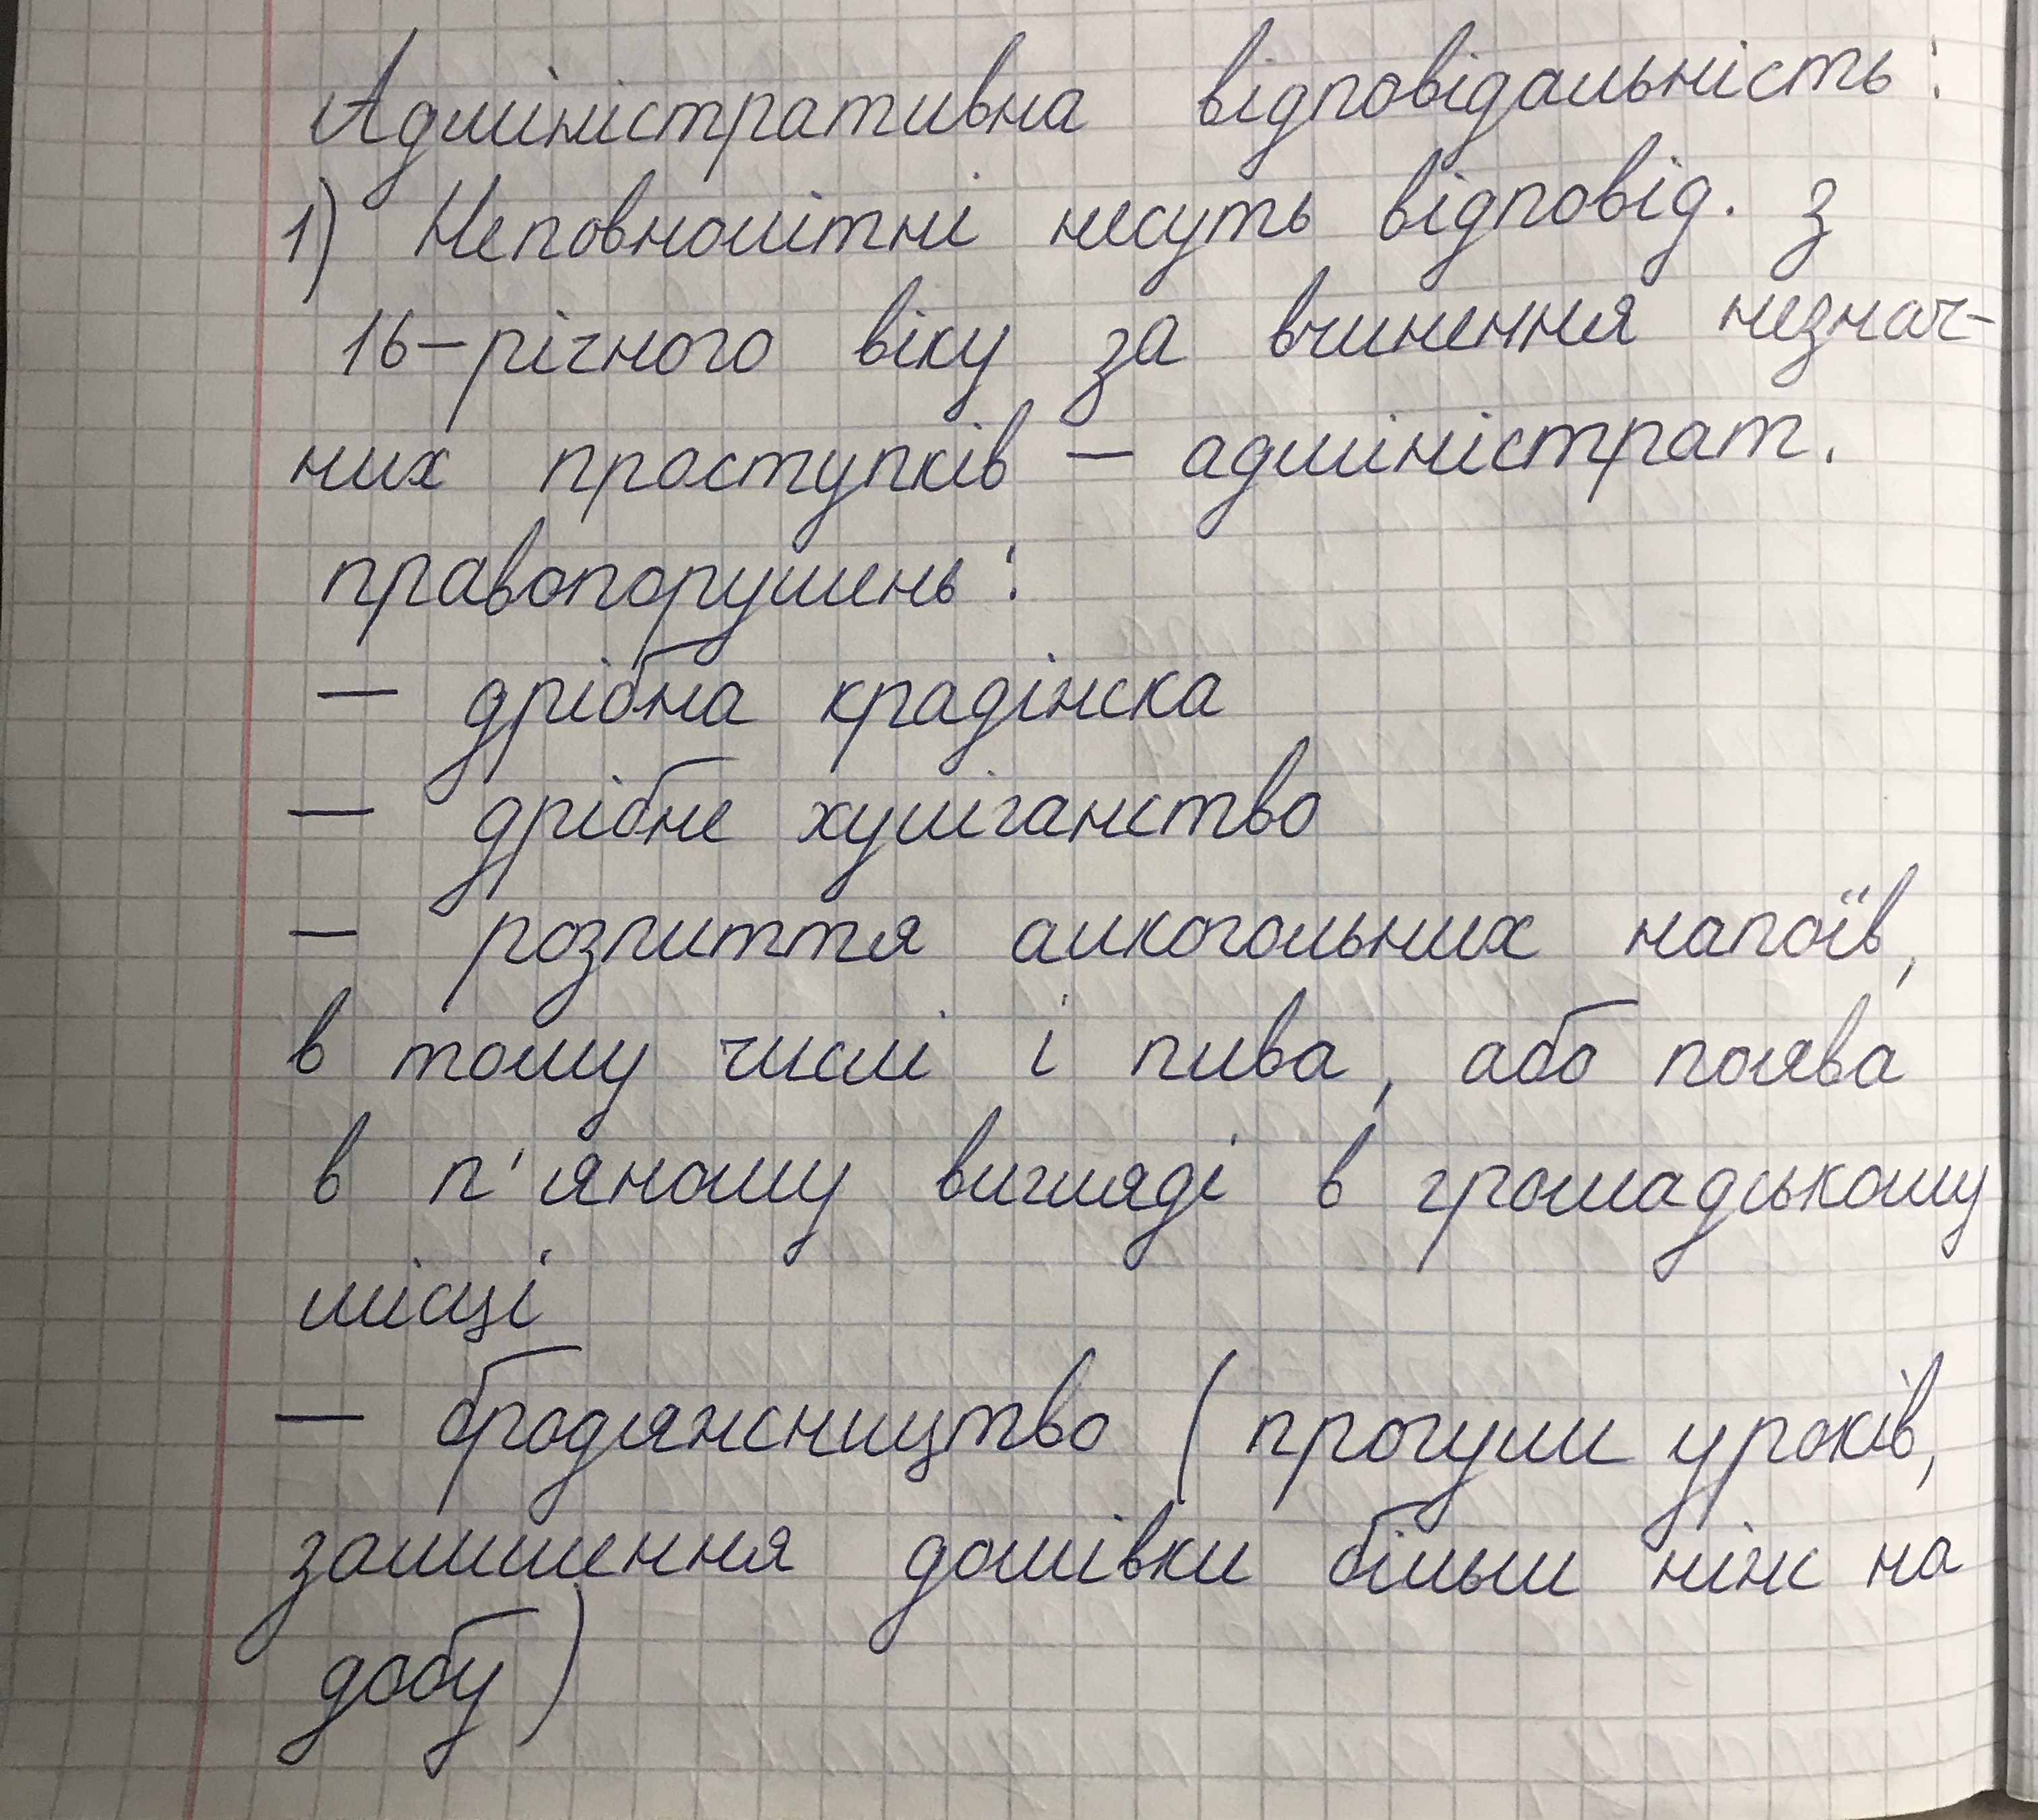 Адміністративна відповідальність:
1) Неповнолітні несуть відповід. з
16-річного віку за вчинення незнач-
них проступків – адміністрат.
правопорушень:
– дрібна крадіжка
– дрібне хуліганство
– розпиття алкогольних напоїв,
в тому числі і пива, або поява
в п'яному вигляді в громадському
місці
– бродяжництво (прогули уроків,
залишення домівки більш ніж на
добу)